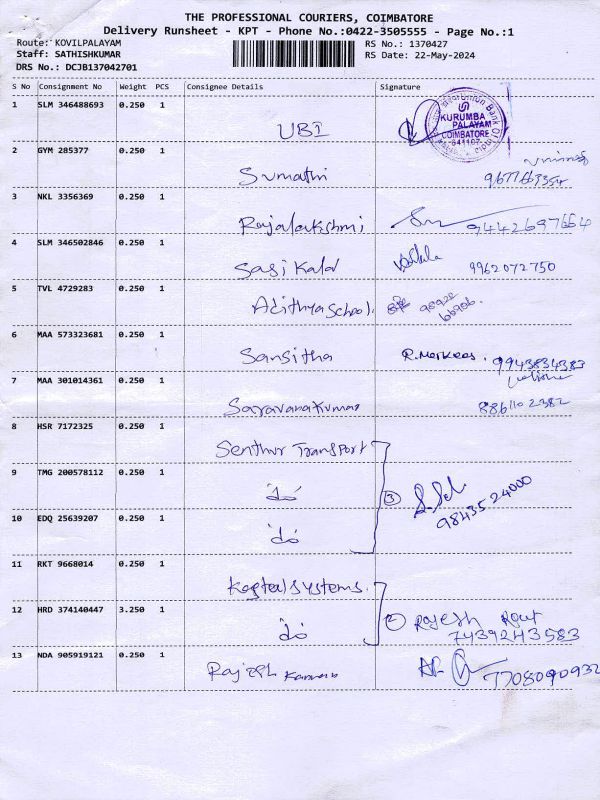 THE PROFESSIONAL COURIERS, COIMBATORE
Delivery Runsheet - KPT - Phone No.:0422-3505555 - Page No.:1
Route: KOVILPALAYAM RS No.: 1370427
Staff: SATHISHKUMAR RS Date: 22-May-2024
DRS No.: DCJB137042701
S No Consignment No Weight PCS Consignee Details Signature
1 SLM 346488693 0.250 1 UBI KURUMBA PALAYAM COIMBATORE 641107
2 GYM 285377 0.250 1 Sumathi 9677663354
3 NKL 3356369 0.250 1 Rajalakshmi 9442697664
4 SLM 346502846 0.250 1 Sasi Kala 9962072750
5 TVL 4729283 0.250 1 Adithya School.
6 MAA 573323681 0.250 1 Sansitha 9943834383
7 MAA 301014361 0.250 1 Saravana Kumar 8861102382
8 HSR 7172325 0.250 1 Senthur Transport
9 TMG 200578112 0.250 1 do 3 9843524000
10 EDQ 25639207 0.250 1 do
11 RKT 9668014 0.250 1 systems.
12 HRD 374140447 3.250 1 do 2 Rajesh Rout 7439243583
13 NDA 905919121 0.250 1 Rajesh 7708090932